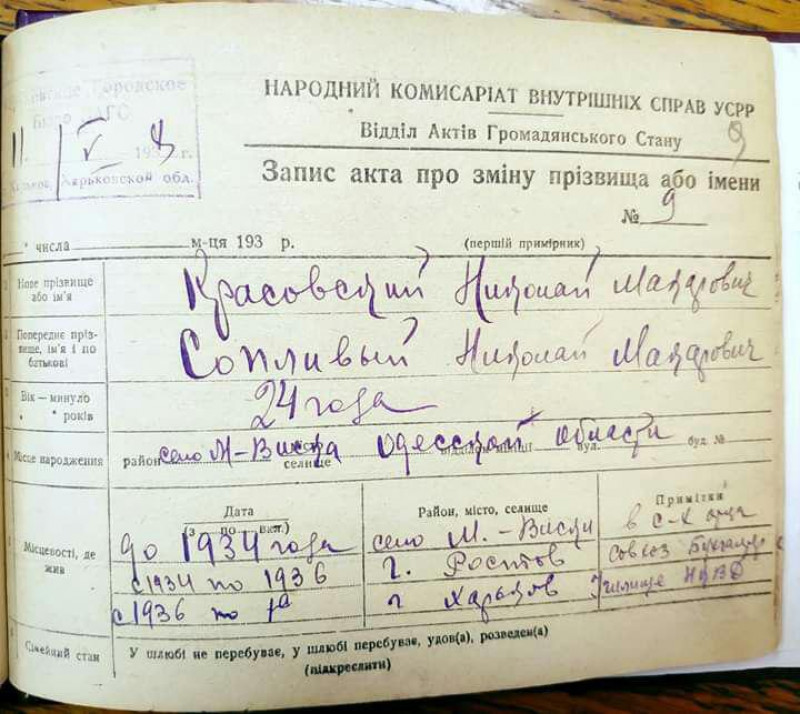 Городское
Бюро ЗАГС
11 V 193 8 г.
Харьков, Харьковской обл.
НАРОДНИЙ КОМИСАРІАТ ВНУТРІШНІХ СПРАВ УСРР
Відділ Актів Громадянського Стану
9
Запис акта про зміну прізвища або імени
№ 9
" числа м-ця 193 р. (перший примірник)
Нове прізвище або ім'я Красовский Николай Макарович
Попереднє прізвище, ім'я і по батькові Сопливый Николай Макарович
Вік — минуло років 24 года
Місце народження район село М-Виска Одесской области
селище вул. буд. №
Місцевості, де жив
Дата (з по вкл.) Район, місто, селище Примітки
до 1934 года село М.-Виски в с-х отца
с 1934 по 1936 г. Ростов совхоз Бухгалтер
с 1936 по г Харьков Училище НКВД
Сімейний стан У шлюбі не перебуває, у шлюбі перебуває, удов(а), розведен(а)
(підкреслити)